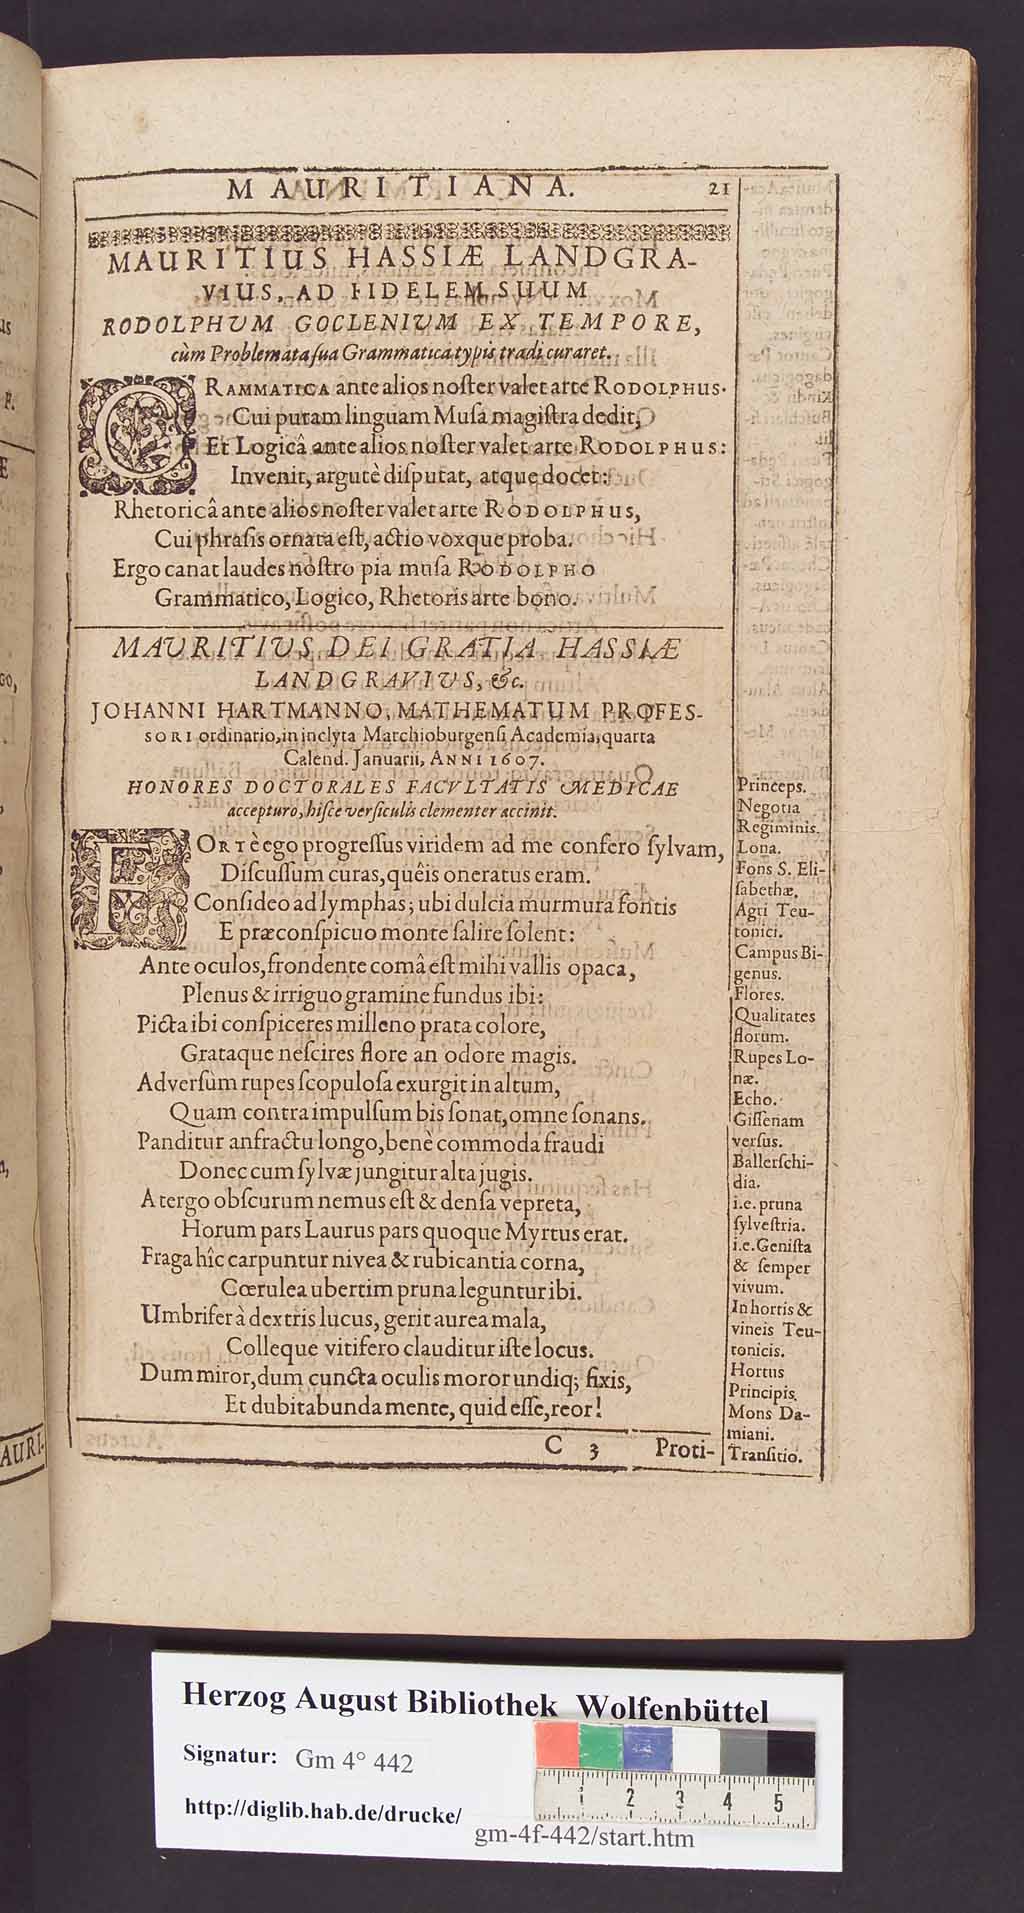 MAURITIANA. 21
MAURITIUS HASSIÆ LANDGRA-
VIUS, AD FIDELEM SUUM
RODOLPHVM GOCLENIVM EX TEMPORE,
cùm Problemata ſua Grammatica typis tradi curaret.
GRAMMATICA ante alios noſter valet arte RODOLPHUS.
Cui puram linguam Muſa magiſtra dedit,
Et Logicâ ante alios noſter valet arte RODOLPHUS:
Invenit, argutè diſputat, atque docet:
Rhetoricâ ante alios noſter valet arte RODOLPHUS,
Cui phraſis ornata eſt, actio voxque proba.
Ergo canat laudes noſtro pia muſa RODOLPHO
Grammatico, Logico, Rhetoris arte bono.
MAVRITIVS DEI GRATIA HASSIÆ
LANDGRAVIVS, &c.
JOHANNI HARTMANNO, MATHEMATUM PROFES-
SORI ordinatio, in inclyta Marchioburgenſi Academia, quarta
Calend. Januarii, ANNI 1607.
HONORES DOCTORALES FACVLTATIS MEDICAE
accepturo, hiſce verſiculis clementer accinit.
FORTÈ ego progreſſus viridem ad me confero ſylvam,
Diſcuſſum curas, quêis oneratus eram.
Conſideo ad lymphas; ubi dulcia murmura fontis
E præconſpicuo monte ſalire ſolent:
Ante oculos, frondente comâ eſt mihi vallis opaca,
Plenus & irriguo gramine fundus ibi:
Picta ibi conſpiceres milleno prata colore,
Grataque neſcires flore an odore magis.
Adverſùm rupes ſcopuloſa exurgit in altum,
Quam contra impulſum bis ſonat, omne ſonans.
Panditur anfractu longo, benè commoda fraudi
Donec cum ſylvæ jungitur alta jugis.
A tergo obſcurum nemus eſt & denſa vepreta,
Horum pars Laurus pars quoque Myrtus erat.
Fraga hîc carpuntur nivea & rubicantia corna,
Cœrulea ubertim pruna leguntur ibi.
Umbrifer à dextris lucus, gerit aurea mala,
Colleque vitifero clauditur iſte locus.
Dum miror, dum cuncta oculis moror undiq; fixis,
Et dubitabunda mente, quid eſſe, reor!
C 3 Proti-
Princeps.
Negotia
Regiminis.
Lona.
Fons S. Eli-
ſabethæ.
Agri Teu-
tonici.
Campus Bi-
genus.
Flores.
Qualitates
florum.
Rupes Lo-
næ.
Echo.
Giſſenam
verſus.
Ballerſchi-
dia.
i.e. pruna
ſylveſtria.
i.e. Geniſta
& ſemper
vivum.
In hortis &
vineis Teu-
tonicis.
Hortus
Principis.
Mons Da-
miani.
Tranſitio.
Herzog August Bibliothek Wolfenbüttel
Signatur: Gm 4° 442
http://diglib.hab.de/drucke/
gm-4f-442/start.htm
1 2 3 4 5